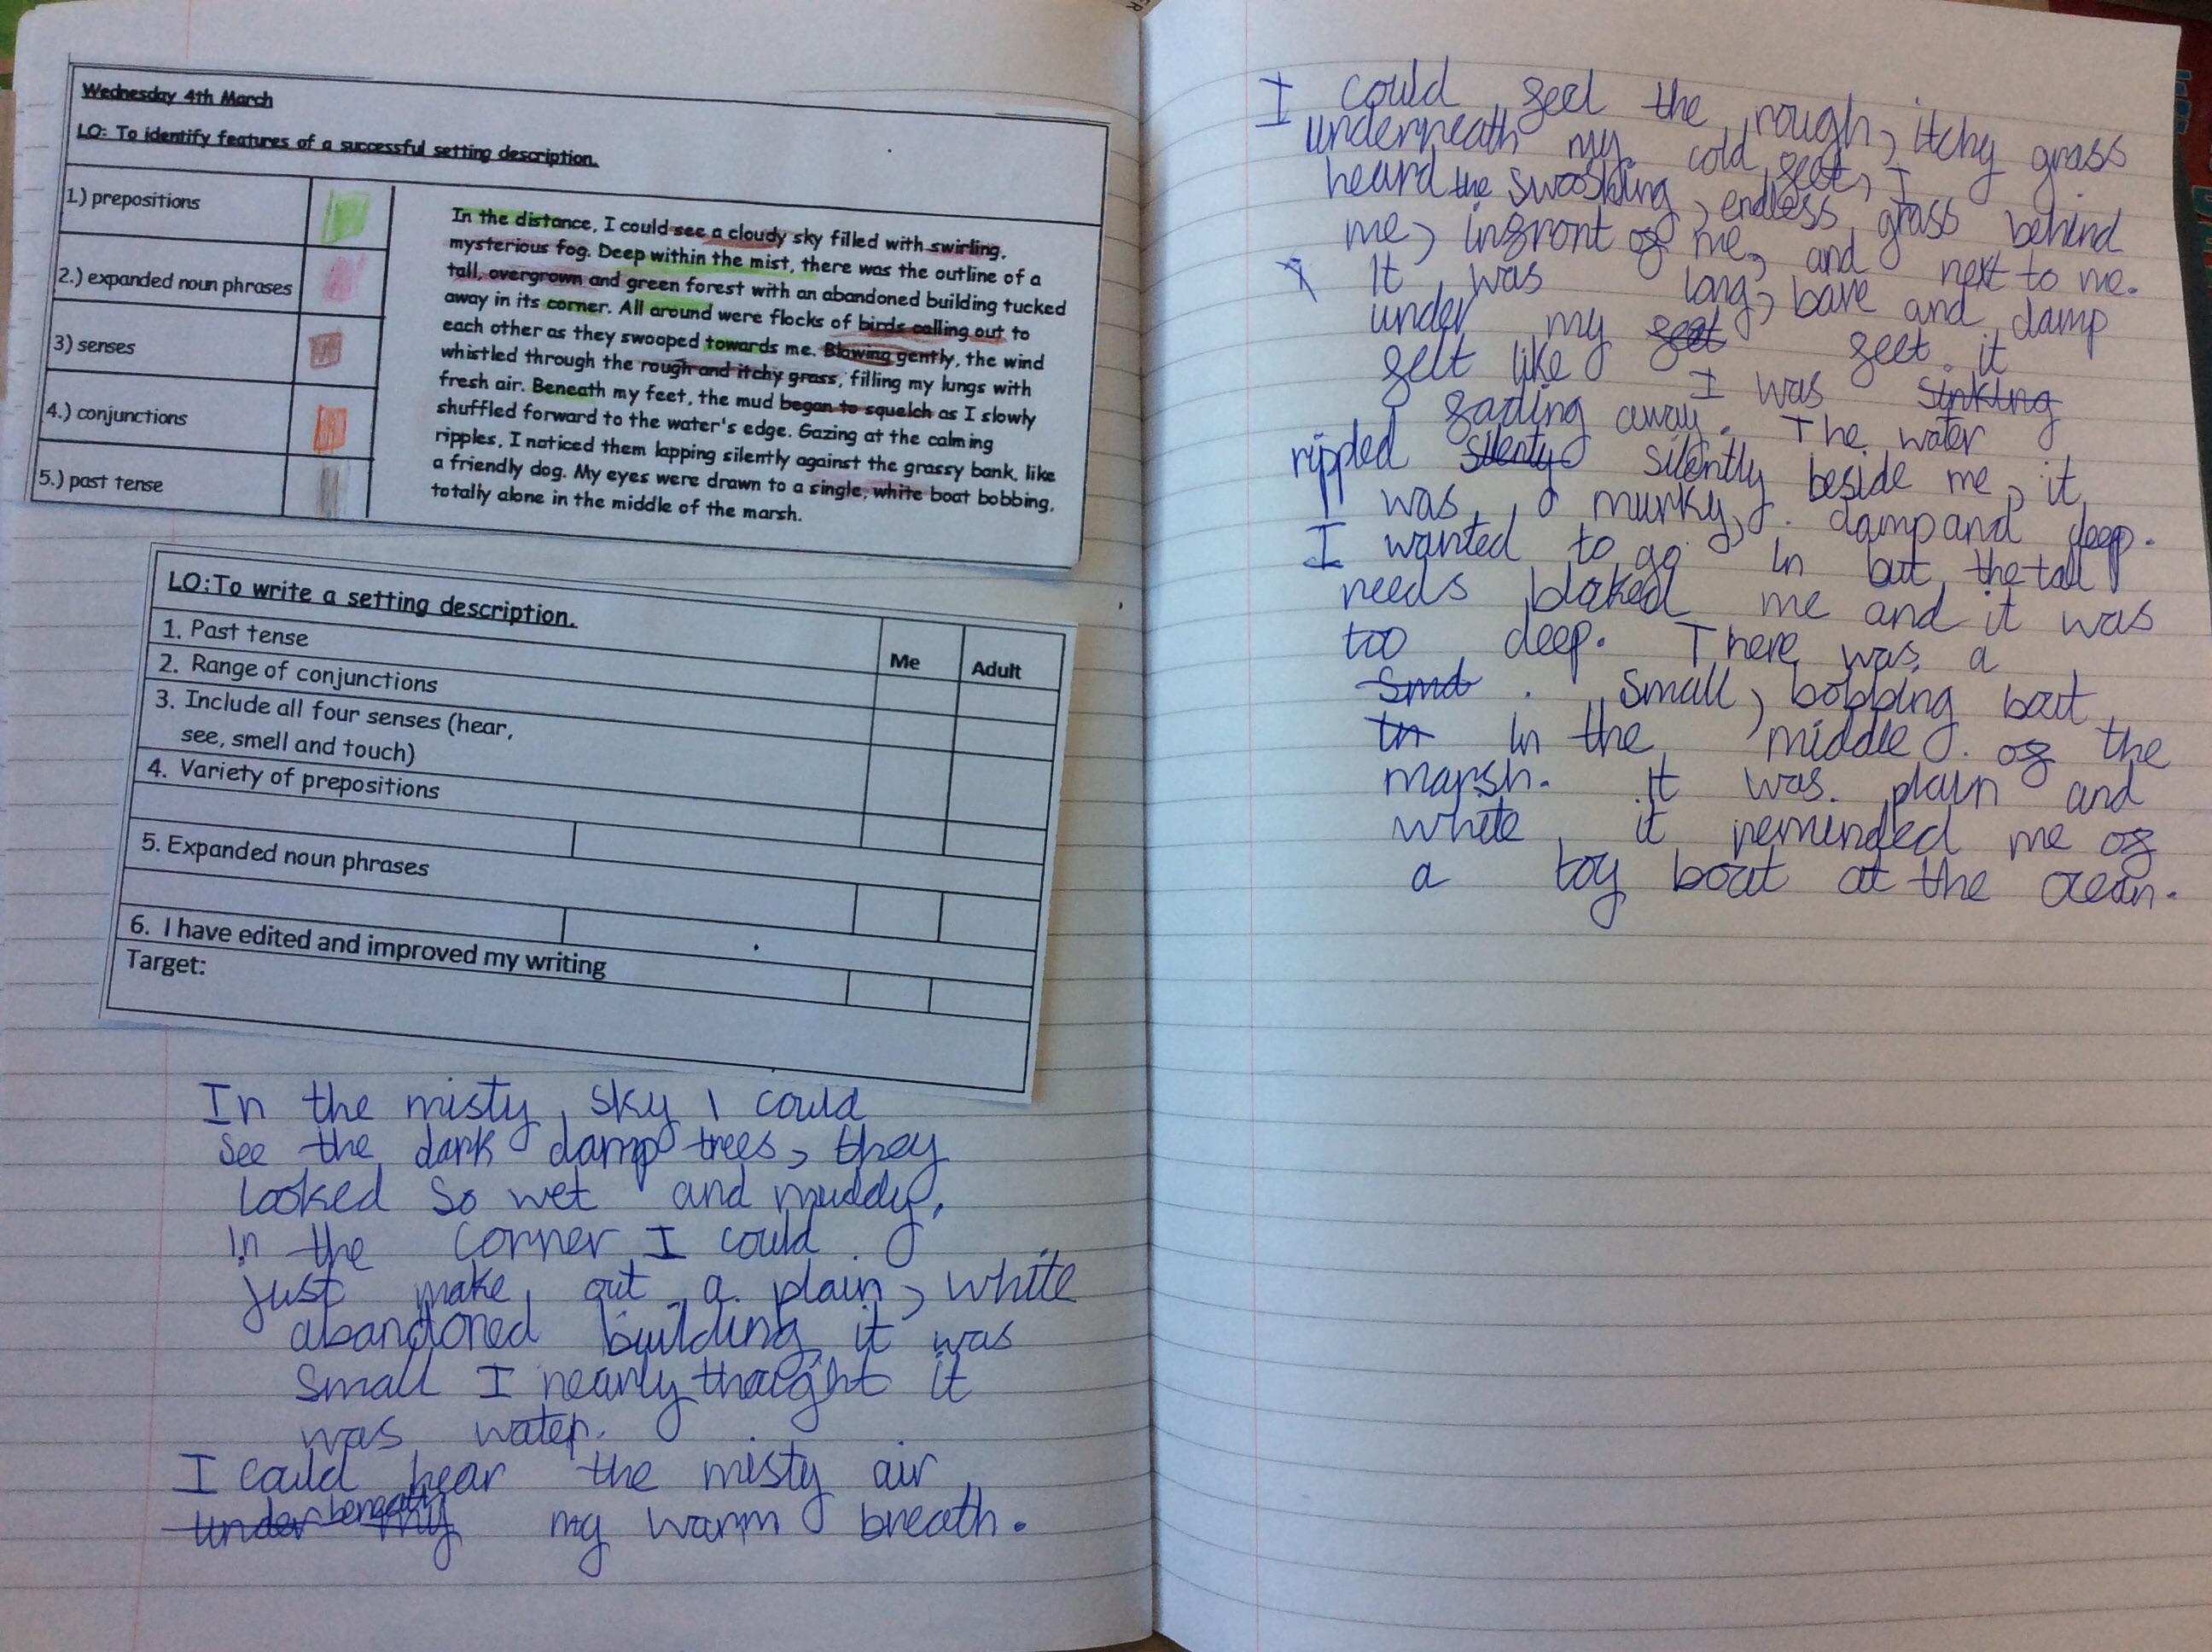 Wednesday 4th March
LO: To identify features of a successful setting description.
1.) prepositions
2.) expanded noun phrases
3) senses
4.) conjunctions
5.) past tense
In the distance, I could see a cloudy sky filled with swirling,
mysterious fog. Deep within the mist, there was the outline of a
tall, overgrown and green forest with an abandoned building tucked
away in its corner. All around were flocks of birds calling out to
each other as they swooped towards me. Blowing gently, the wind
whistled through the rough and itchy grass, filling my lungs with
fresh air. Beneath my feet, the mud began to squelch as I slowly
shuffled forward to the water's edge. Gazing at the calming
ripples, I noticed them lapping silently against the grassy bank, like
a friendly dog. My eyes were drawn to a single, white boat bobbing,
totally alone in the middle of the marsh.
LO:To write a setting description.
Me
Adult
1. Past tense
2. Range of conjunctions
3. Include all four senses (hear,
see, smell and touch)
4. Variety of prepositions
5. Expanded noun phrases
6. I have edited and improved my writing
Target:
In the misty sky I could
see the dark damp trees, they
looked so wet and muddy,
in the corner I could
just make out a plain, white
abandoned building it was
small I nearly thought it
was water.
I could hear the misty air
under beneath my my warm breath.
I could feel the rough, itchy grass
underneath my cold feet, I
heard the swooshing, endless grass behind
me, infront of me, and next to me.
It was long, bare and damp
under my feet feet it
felt like I was sinking
fading away. The water
rippled silenty silently beside me, it
was murky, damp and deep.
I wanted to go in but the tall
reeds blocked me and it was
too deep. There was a
smal small, bobbing boat
in in the middle of the
marsh. it was plain and
white it reminded me of
a toy boat at the ocean.